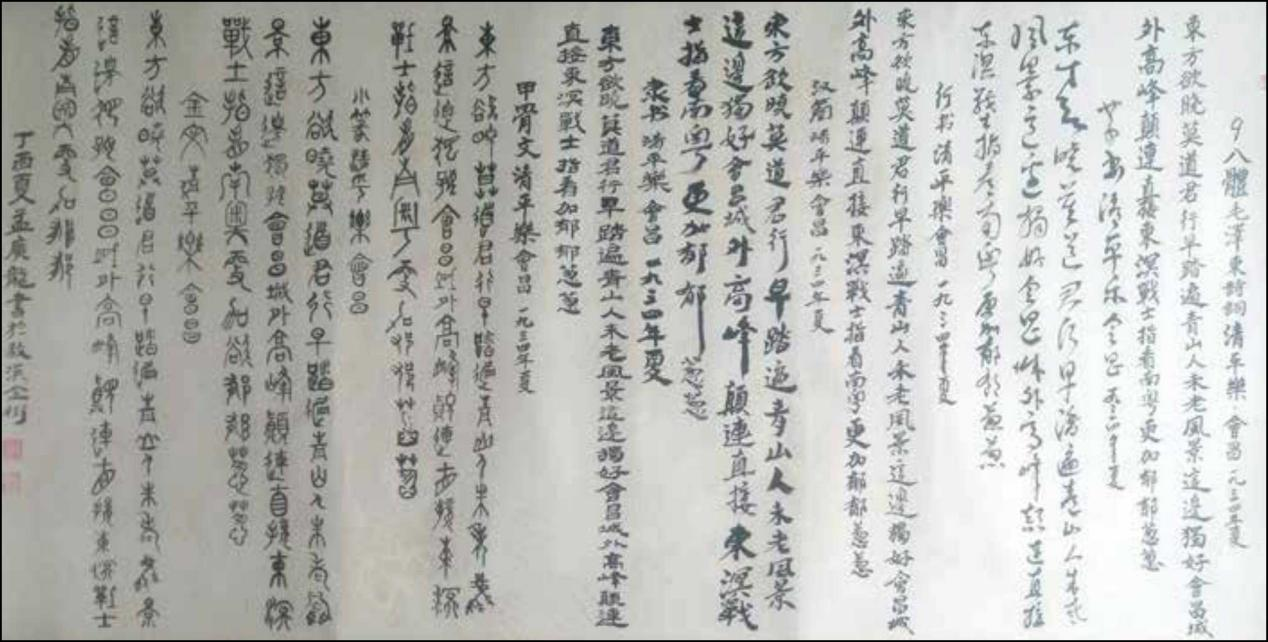 9八體毛澤東詩詞清平樂·會昌一九三四年夏
東方欲曉莫道君行早踏遍青山人未老風景這邊獨好會昌城
外高峰顛連直接東溟戰士指看南粵更加郁郁蔥蔥
草书清平乐会昌一九三四年夏
东方欲晓莫道君行早踏遍青山人未老
风景这边独好会昌城外高峰颠连直接
东溟战士指看南粤更加郁郁葱葱
行书清平樂會昌一九三四年夏
東方欲曉莫道君行早踏遍青山人未老風景這邊獨好會昌城
外高峰顛連直接東溟戰士指看南粵更加郁郁蔥蔥
汉简清平樂會昌一九三四年夏
東方欲曉莫道君行早踏遍青山人未老風景
這邊獨好會昌城外高峰顛連直接東溟戰
士指看南粵更加郁郁葱葱
隶书清平樂會昌一九三四年夏
東方欲曉莫道君行早踏遍青山人未老風景這邊獨好會昌城外高峰顛連
直接東溟戰士指看加郁郁蔥蔥
甲骨文清平樂會昌一九三四年夏
東方欲曉莫道君行早踏遍青山人未老風
景這邊獨好會昌城外高峰顛連直接東溟
戰士指看南粵更加郁郁蔥蔥
小篆清平樂會昌
東方欲曉莫道君行早踏遍青山人未老風
景這邊獨好會昌城外高峰顛連直接東溟
戰士指看南粵更加郁郁蔥蔥
金文清平樂會昌
東方欲曉莫道君行早踏遍青山人未老風景
這邊獨好會昌城外高峰顛連直接東溟戰士
指看南粵更加郁郁
丁酉夏孟廣龍書於敖漢